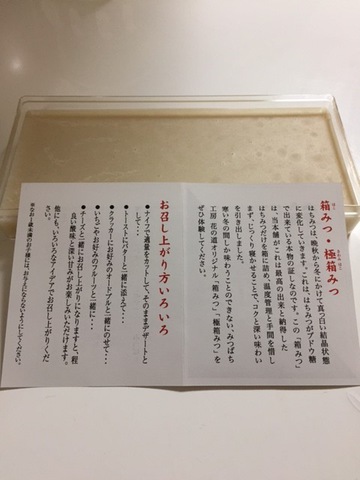 箱みつ・極箱みつ
はちみつは、晩秋から冬にかけて真っ白い結晶状態
に変化していきます。これは、はちみつがブドウ糖
で出来ている本物の証しなのです。この「箱みつ」
は、当本舗がこれは最高の出来と納得した
はちみつだけを箱に詰め、温度管理と手間を惜し
まず、じっくり寝かせることで、コクと深い味わい
を引き出しました。
寒い冬の間しか味わうことのできない、みつばち
工房 花の道オリジナル「箱みつ」、「極箱みつ」を
ぜひ体験してください。
お召し上がり方いろいろ
●ナイフで適量をカットして、そのままデザートと
して・・・
●トーストにバターと一緒に添えて・・・
●クラッカーにお好みのオードブルと一緒にのせて・・・
●いちごやお好みのフルーツと一緒に・・・
●チーズと一緒にお召し上がりになりますと、程
良い酸味と深い甘みがお楽しみいただけます。
他にも、いろいろなアイデアでお召し上がりくだ
さい。